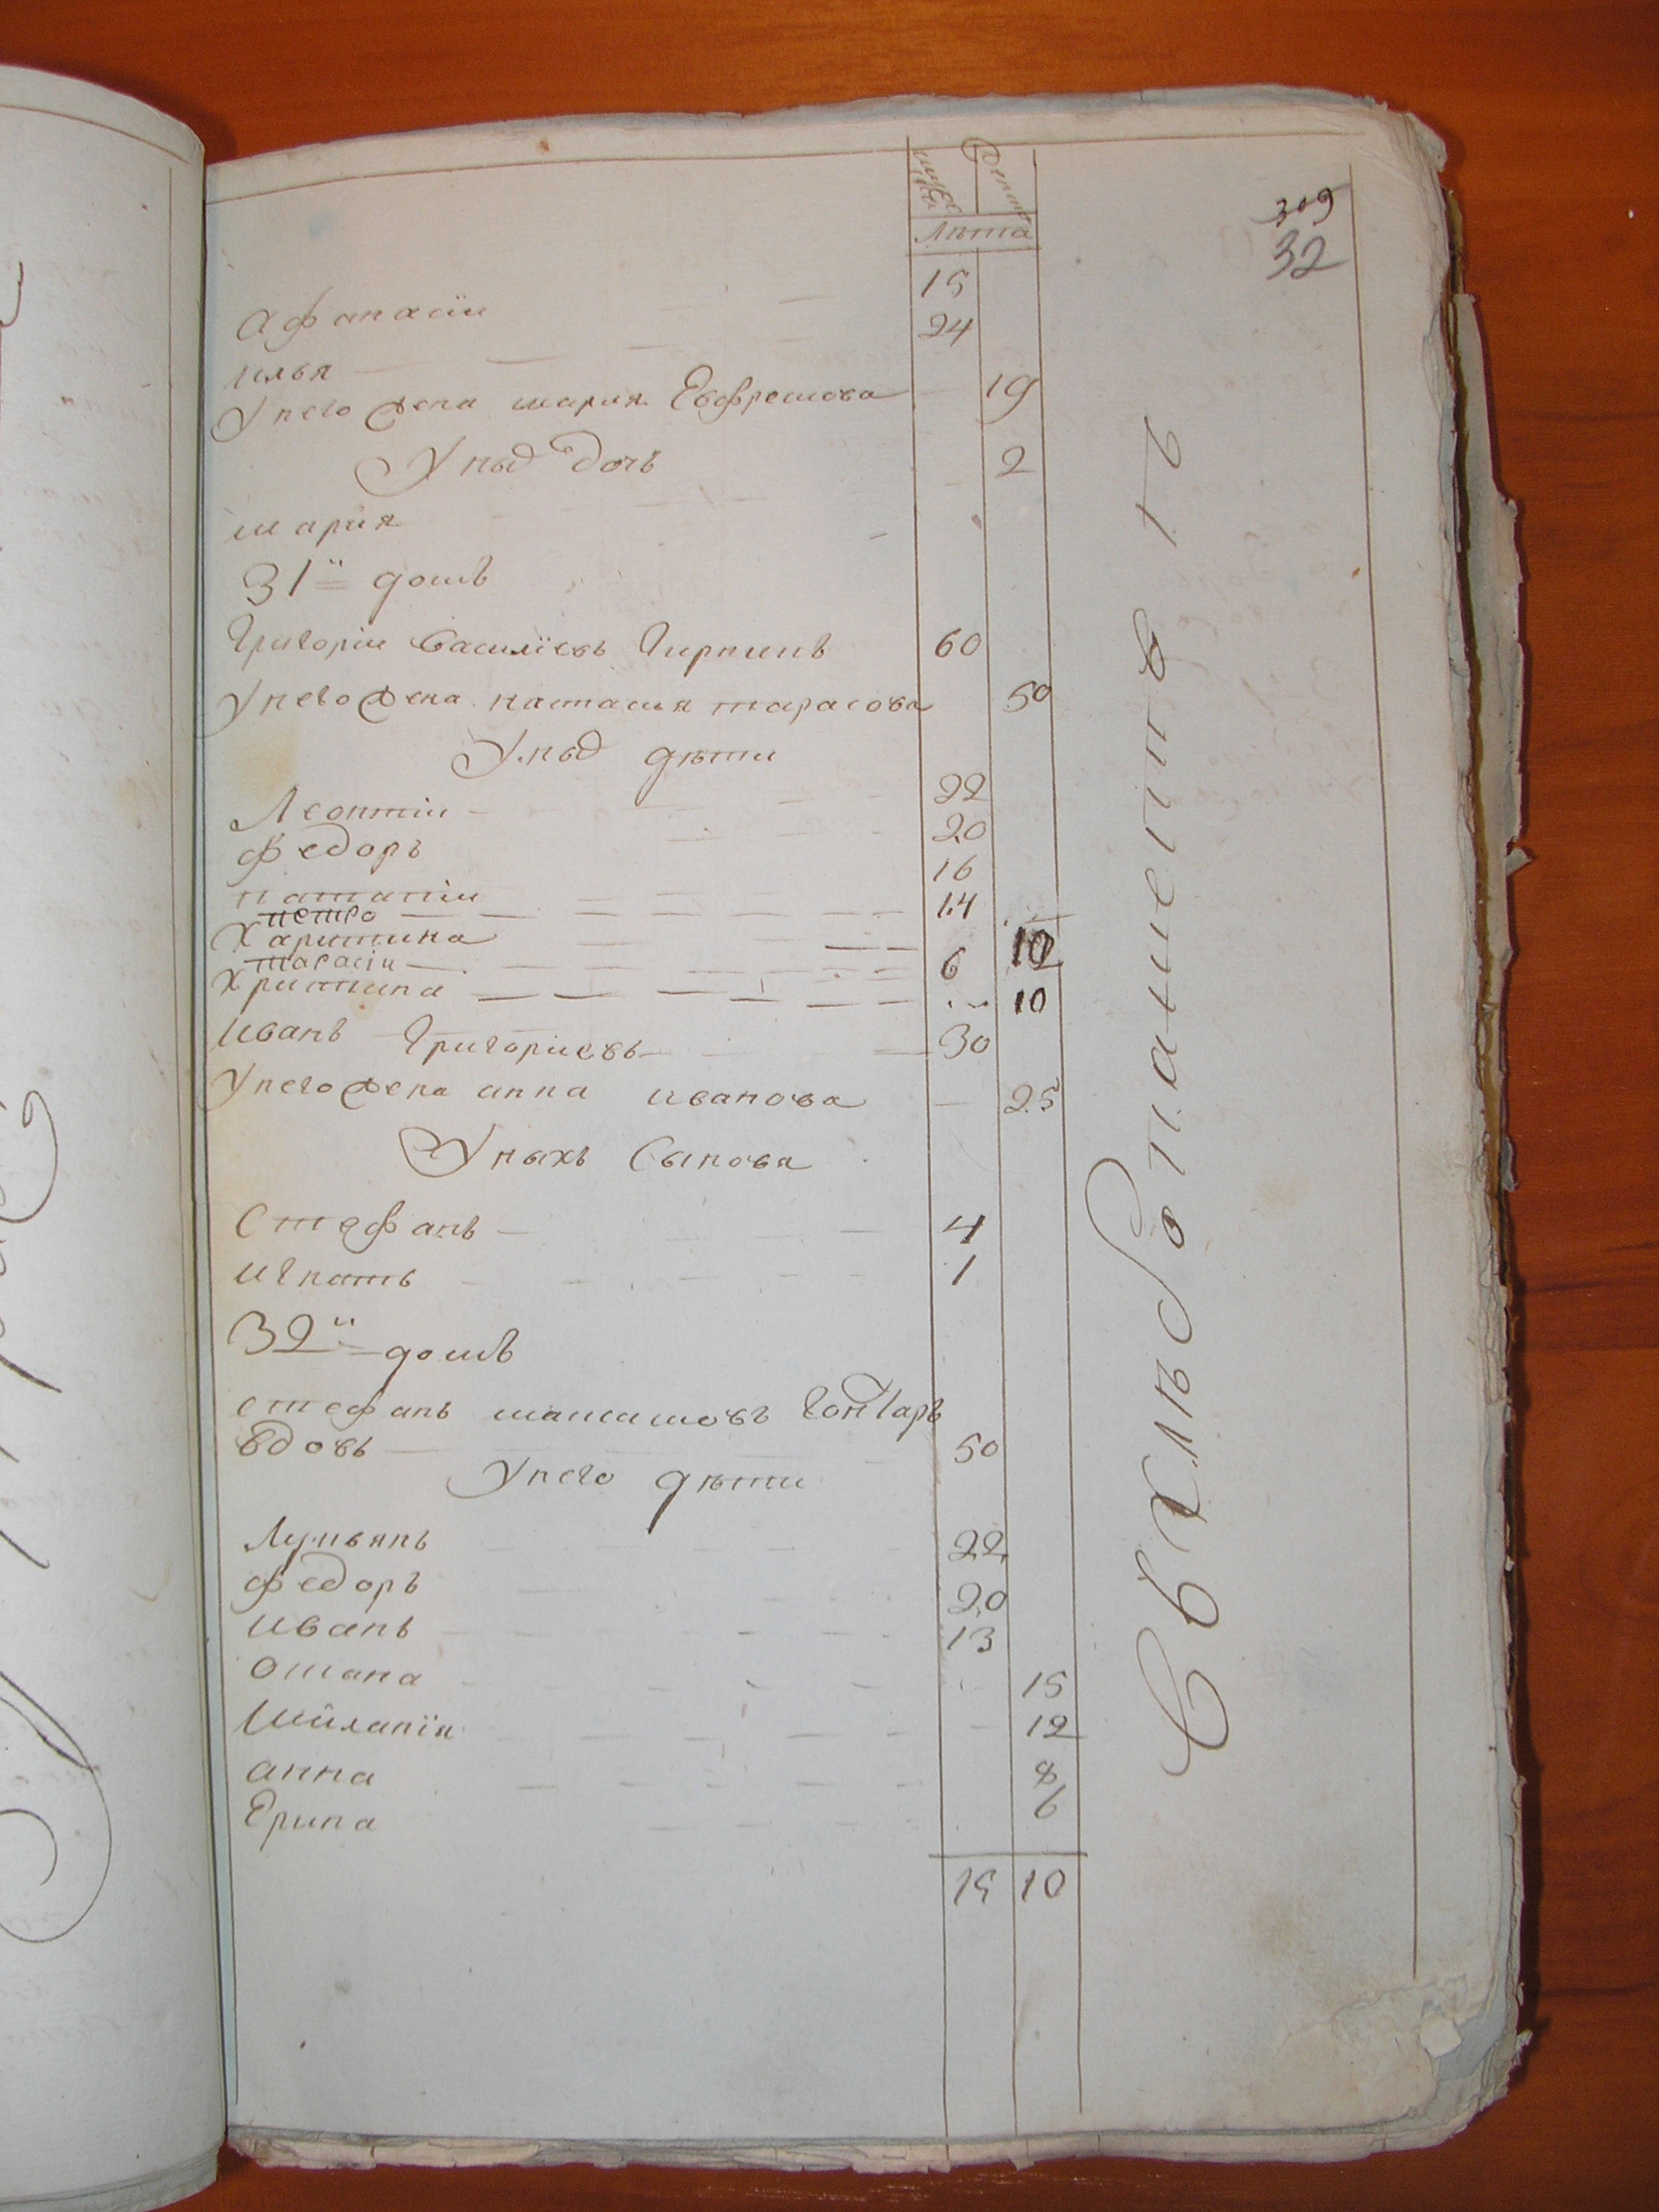 мужеска женска
Лѣта
309
32
Афанасіи 15
илья 24
У него жена мария Евфремова 19
У ныхъ дочъ 2
мария
31й домъ
Григории Василіевъ 60
У него жена настасия тарасова 50
У ныхъ дѣти
Леонтіи 22
федоръ 20
патапіи 16
петро 14
Харитина 12
тарасіи 6
Христина 10
иванъ Григориевъ 30
У него жена анна иванова 25
У ныхъ Сынови
Стефанъ 4
игнатъ 1
32й домъ
стефанъ Гончаръ
вдовъ 50
У него дѣти
Лукьянъ 22
федоръ 20
иванъ 13
оксана 15
Мѣланія 12
анна 8
Ерина 6
15 10
Въ хлѣбопашествѣ